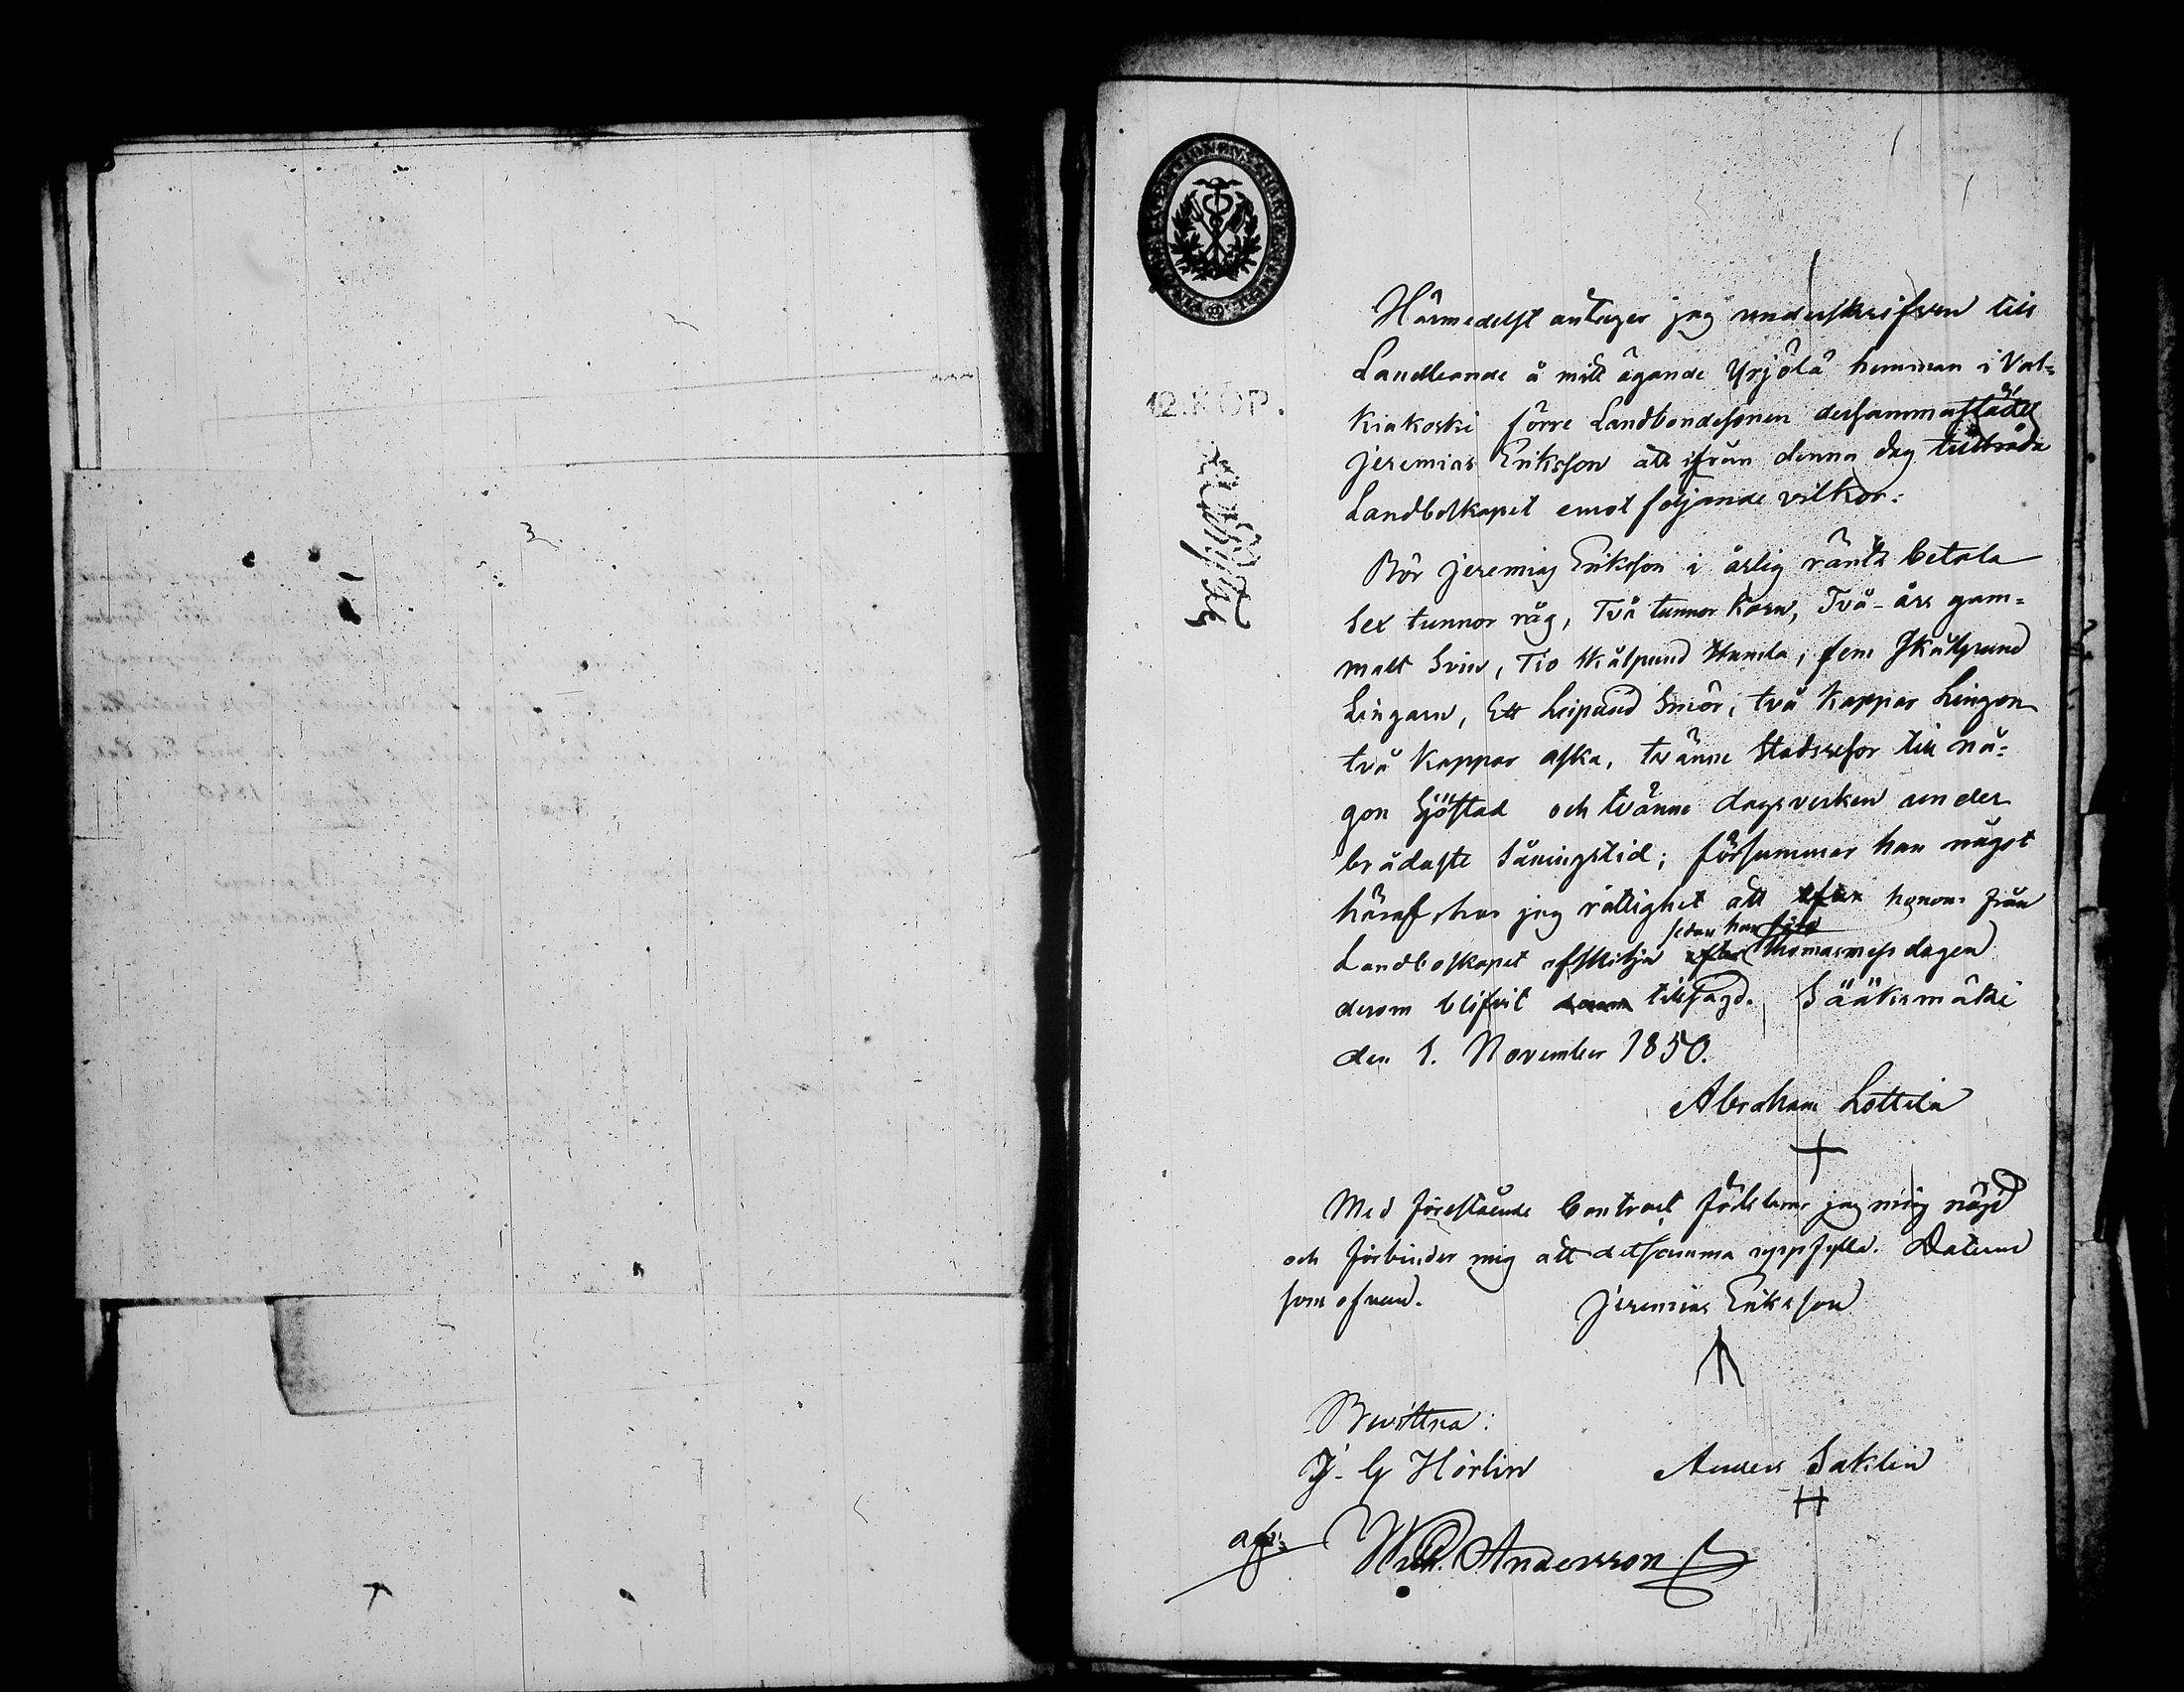 12. KOP.
Härmedelst antager jag underskrifven till
Landbonde å mitt ägande Yrjölä hemman i Val=
kiakoski förre Landbondesonen dersammastädes
Jeremias Eriksson att ifrån denna dag tillträda
Landboskapet emot följande vilkor:
Bör Jeremias Eriksson i årlig ränta betala
Sex tunnor råg, Två tunnor Korn, Två-års gam=
malt Svin, Tio skålpund Humla, fem skålpund
Lingarn, Ett Leispund Smör, två Kappar Lingon
två Kappar aska, tvänne Stadsresor till nå=
gon Sjöstad och tvänne dagsverken under
brådaste Såningstid; försummar han något
häraf, har jag rättighet att efter honom från
sedan han före
Landboskapet afskilja efter Thomasmess dagen
derom blifvit tillsagd. Sääksmäki
den 1. November 1850.
Abraham Lottila
Med förestående Contract förklarar jag mig nöjd
och förbinder mig att detsamma uppfylla. Datum
som ofvan. Jeremias Eriksson
Bevittna:
J. G Hörlin Anders Saklin
Wilh. Andersson